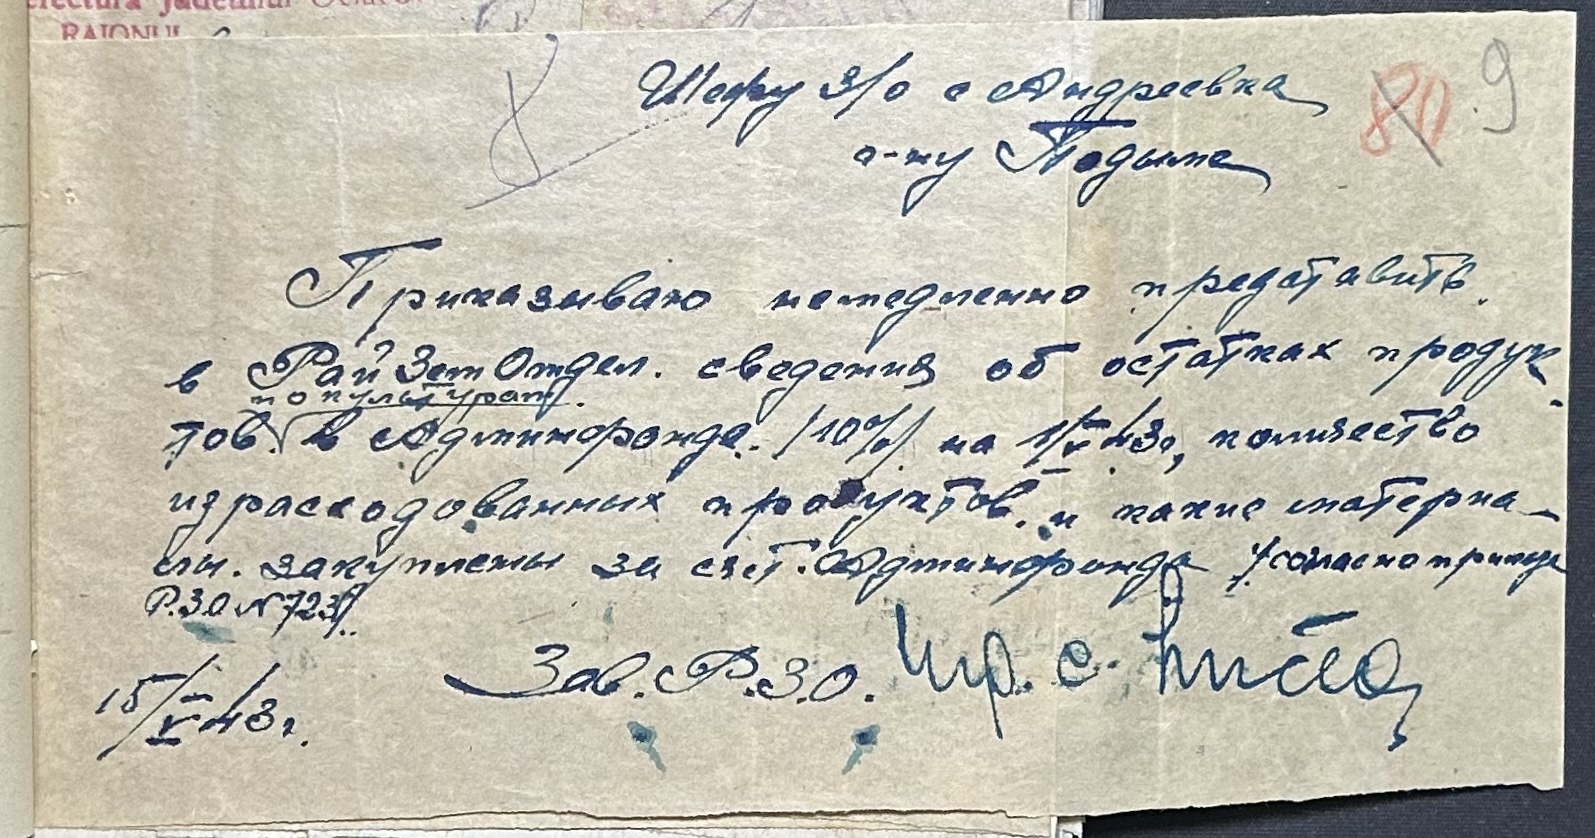 Județului
RAIONUL
80 9
Шефу З/О с Андреевка
а-ну Подыма
Приказываю немедленно представить
в РайЗемОтдел. сведения об остатках продук-
по культурам.
тов. в Админфонде. /10%/ на 1/V 43г, количество
израсходованных продуктов. и какие материа-
лы. закуплены за счёт. Админфонда /согласно приказа
Р.З.О № 723/.
Зав. Р.З.О.
15/V 43г.